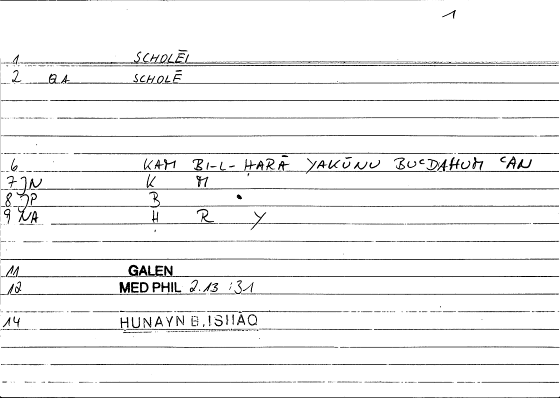 1
1 SCHOLĒI
2 QA SCHOLĒ
6 KAM BI-L-ḤARĀ YAKŪNU BUʿDAHUM ʿAN
7 JN K M
8 JP B •
9 NA H R Y
11 GALEN
12 MED PHIL 2.13 :31
14 HUNAYN B.ISHĀQ